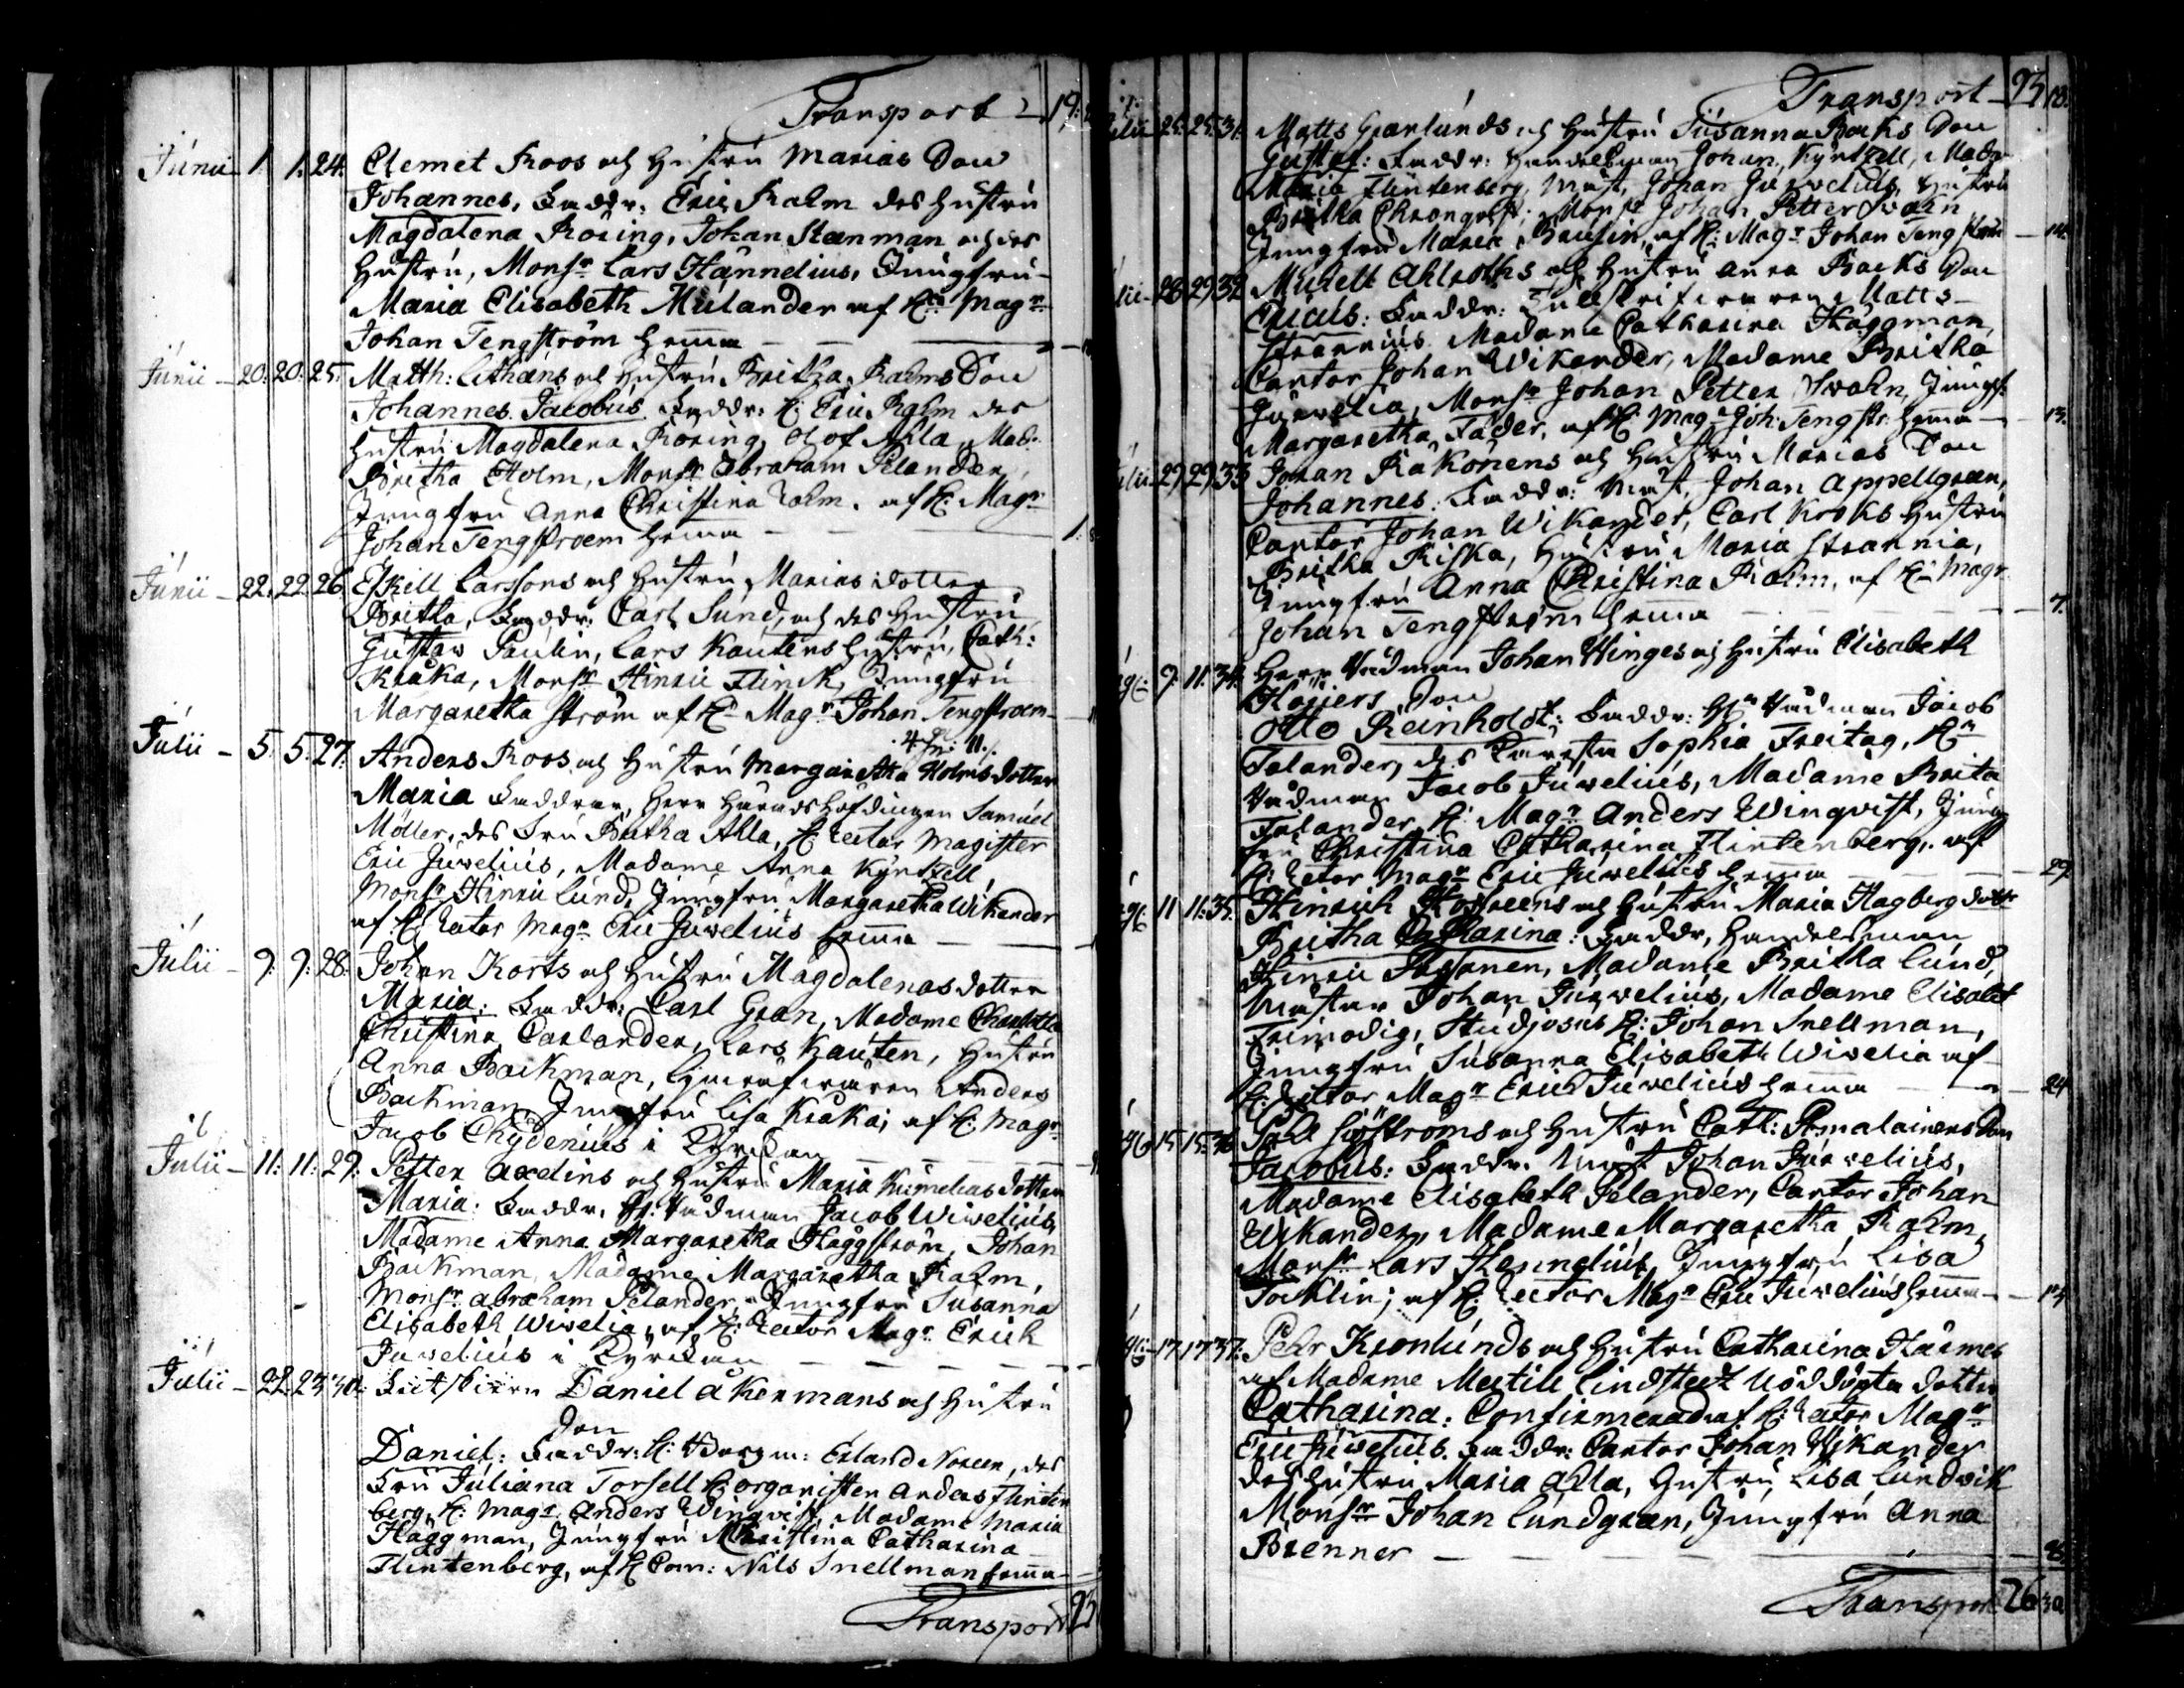 Transport 19:
Junii 1. 1. 24. Clemet Roos och Hustru Marias Son
Johannes, Faddr: Eric Kalm des hustru
Magdalena Rosing, Johan Steenman och des
Hustru, Monsr Lars Hannelius, Jungfru
Maria Elisabeth Mulander af Hr Magr
Johan Tengström hema
Junii 20: 20: 25. Matth: Lithæns och Hustru Britha Kalms Son
Johannes Jacobus. Faddr: H: Eric Kalm des
hustru Magdalena Rosing, Olof Ahla, Mad:
Britha Holm, Monsr Abraham Pelander,
Jungfru Anna Christina Kalm. af H: Magr
Johan Tengstroem hema 1:
Junii 22. 22. 26. Eskill Larssons och Hustru Marias dotter
Britha, Faddr: Carl Sund, och des Hustru
Gustaw Paulin, Lars Kautens Hustru, Cath:
Kråka, Monsr Hinric Flinck, Jungfru
Margaretha Ström af Hr Magr Johan Tengstroem
Julii 5. 5. 27. Anders Roos och Hustru Margaretha Holms dotter
Maria Faddrar, Herr Häradshöfdingen Samuel
Möller, des Fru Britha Ahla, H. Rector Magister
Eric Juvelius, Madame Anna Kyntzell,
Monsr Hinric Lund, Jungfru Margaretha Wikander
af H. Rector Magr Eric Juvelius hema
Julii 9: 9: 28. Johan Korts och Hustru Magdalenas dotter
Maria: Faddr: Carl Gran, Madame Charlotta
Christina Carlander, Lars Kauten, Hustru
Anna Backman, Anders
Backman, Jungfru Lisa Kråka; af H. Magr
Jacob Chydenius i Kyrckan
Julii 11: 11: 29. Petter Axelins och Hustru Maria Kumelias dotter
Maria: Faddr. H: Rådman Jacob Wivelius,
Madame Anna Margaretha Häggström, Johan
Backman, Madame Margaretha Kalm,
Monsr Abraham Pelander, Jungfru Susanna
Elisabeth Wivelia, af H: Rector Magr Erich
Juvelius i Kyrckan
Julii 22. 23 30. Daniel Åkermans och Hustru
Son
Daniel: Faddr: H: Borgm: Erland Noreen, des
Fru Juliana Torsell H: organisten Anders Flinten
berg, H: Magr Anders Winqvist, Madame Maria
Häggman, Jungfru Christina Catharina
Flintenberg, af H Com: Nils Snellman hema
Transport 23
Transport 23 18.
25. 25. 31. Matts Granlunds och Hustru Susanna Backs Son
Gustaf: Faddr: Handelsman Johan Kyntzell, Mada-
Maria Flintenberg, Mäst. Johan Juwelius, Hustru
Britha Cronqvist, Monsr Johan Petter Swahn
Jungfru Maria af H: Magr Johan Tengström 14.
28 29 32 Mickell Ahlroths och Hustru Anna Backs Son
Ericus: Faddr: Matts
Madame Catharina Häggman,
Cantor Johan Wikander, Madame Britha
Juwelia, Monsr Johan Petter Swahn, Jungf:
Margaretha Fader, af H: Magr Joh: Tengstr: hema 13.
29 29 33 Johan Kåkonens och Hustru Marias Son
Johannes: Faddr: Mäst. Johan Appellgreen,
Cantor Johan Wikander, Carl Kroks Hustru
Britha Riska, Hustru Maria Strannia,
Jungfru Anna Christina Kalm, af Hr Magr
Johan Tengström hema 7.
9. 11. 34. Herr Rådman Johan Winges och Hustru Elisabeth
Son
Otto Reinholdt: Faddr: Hr Rådman Jacob
Falander, des Sophia Freitag, Hr
Rådman Jacob Juvelius, Madame Brita
Falander, H: Magr Anders Winqvist, Jung
fru Christina Catharina Flintenberg, af
H: Rector Magr Eric Juvelius hema 29
11 11: 35. Hinrich och Hustru Maria Hagberg dotter
Britha Catharina: Faddr, Handelsman
Hinric, Madame Britha Lund,
Mästar Johan Juvelius, Madame Elisabet
Frimodig, Studiosus H: Johan Snellman,
Jungfru Susanna Elisabeth Wivelia af
H: Rector Magr Eric Juvelius hema 24
15 15. 36 Påhl Sjöströms och Hustru Cath: Pomalainens Son
Jacobus: Faddr: Mäst Johan Juvelius,
Madame Elisabeth Pelander, Cantor Johan
Wikander, Madame Margaretha Kalm,
Monsr Lars Hennelius, Jungfru Lisa
Tocklin; af H. Rector Magr Eric Juvelius hema 13
17 17 37. Pehr Kronlunds och Hustru Catharina Harmes
af Madame Meetill Lindstedt Nöddöpta dotter
Catharina: Confirmerad af H: Rector Magr
Eric Juvelius. Faddr: Cantor Johan Wikander
des hustru Maria Ahla, Hustru Lisa Lundvik
Monsr Johan Lundgræn, Jungfru Anna
Brenner
Transport 26